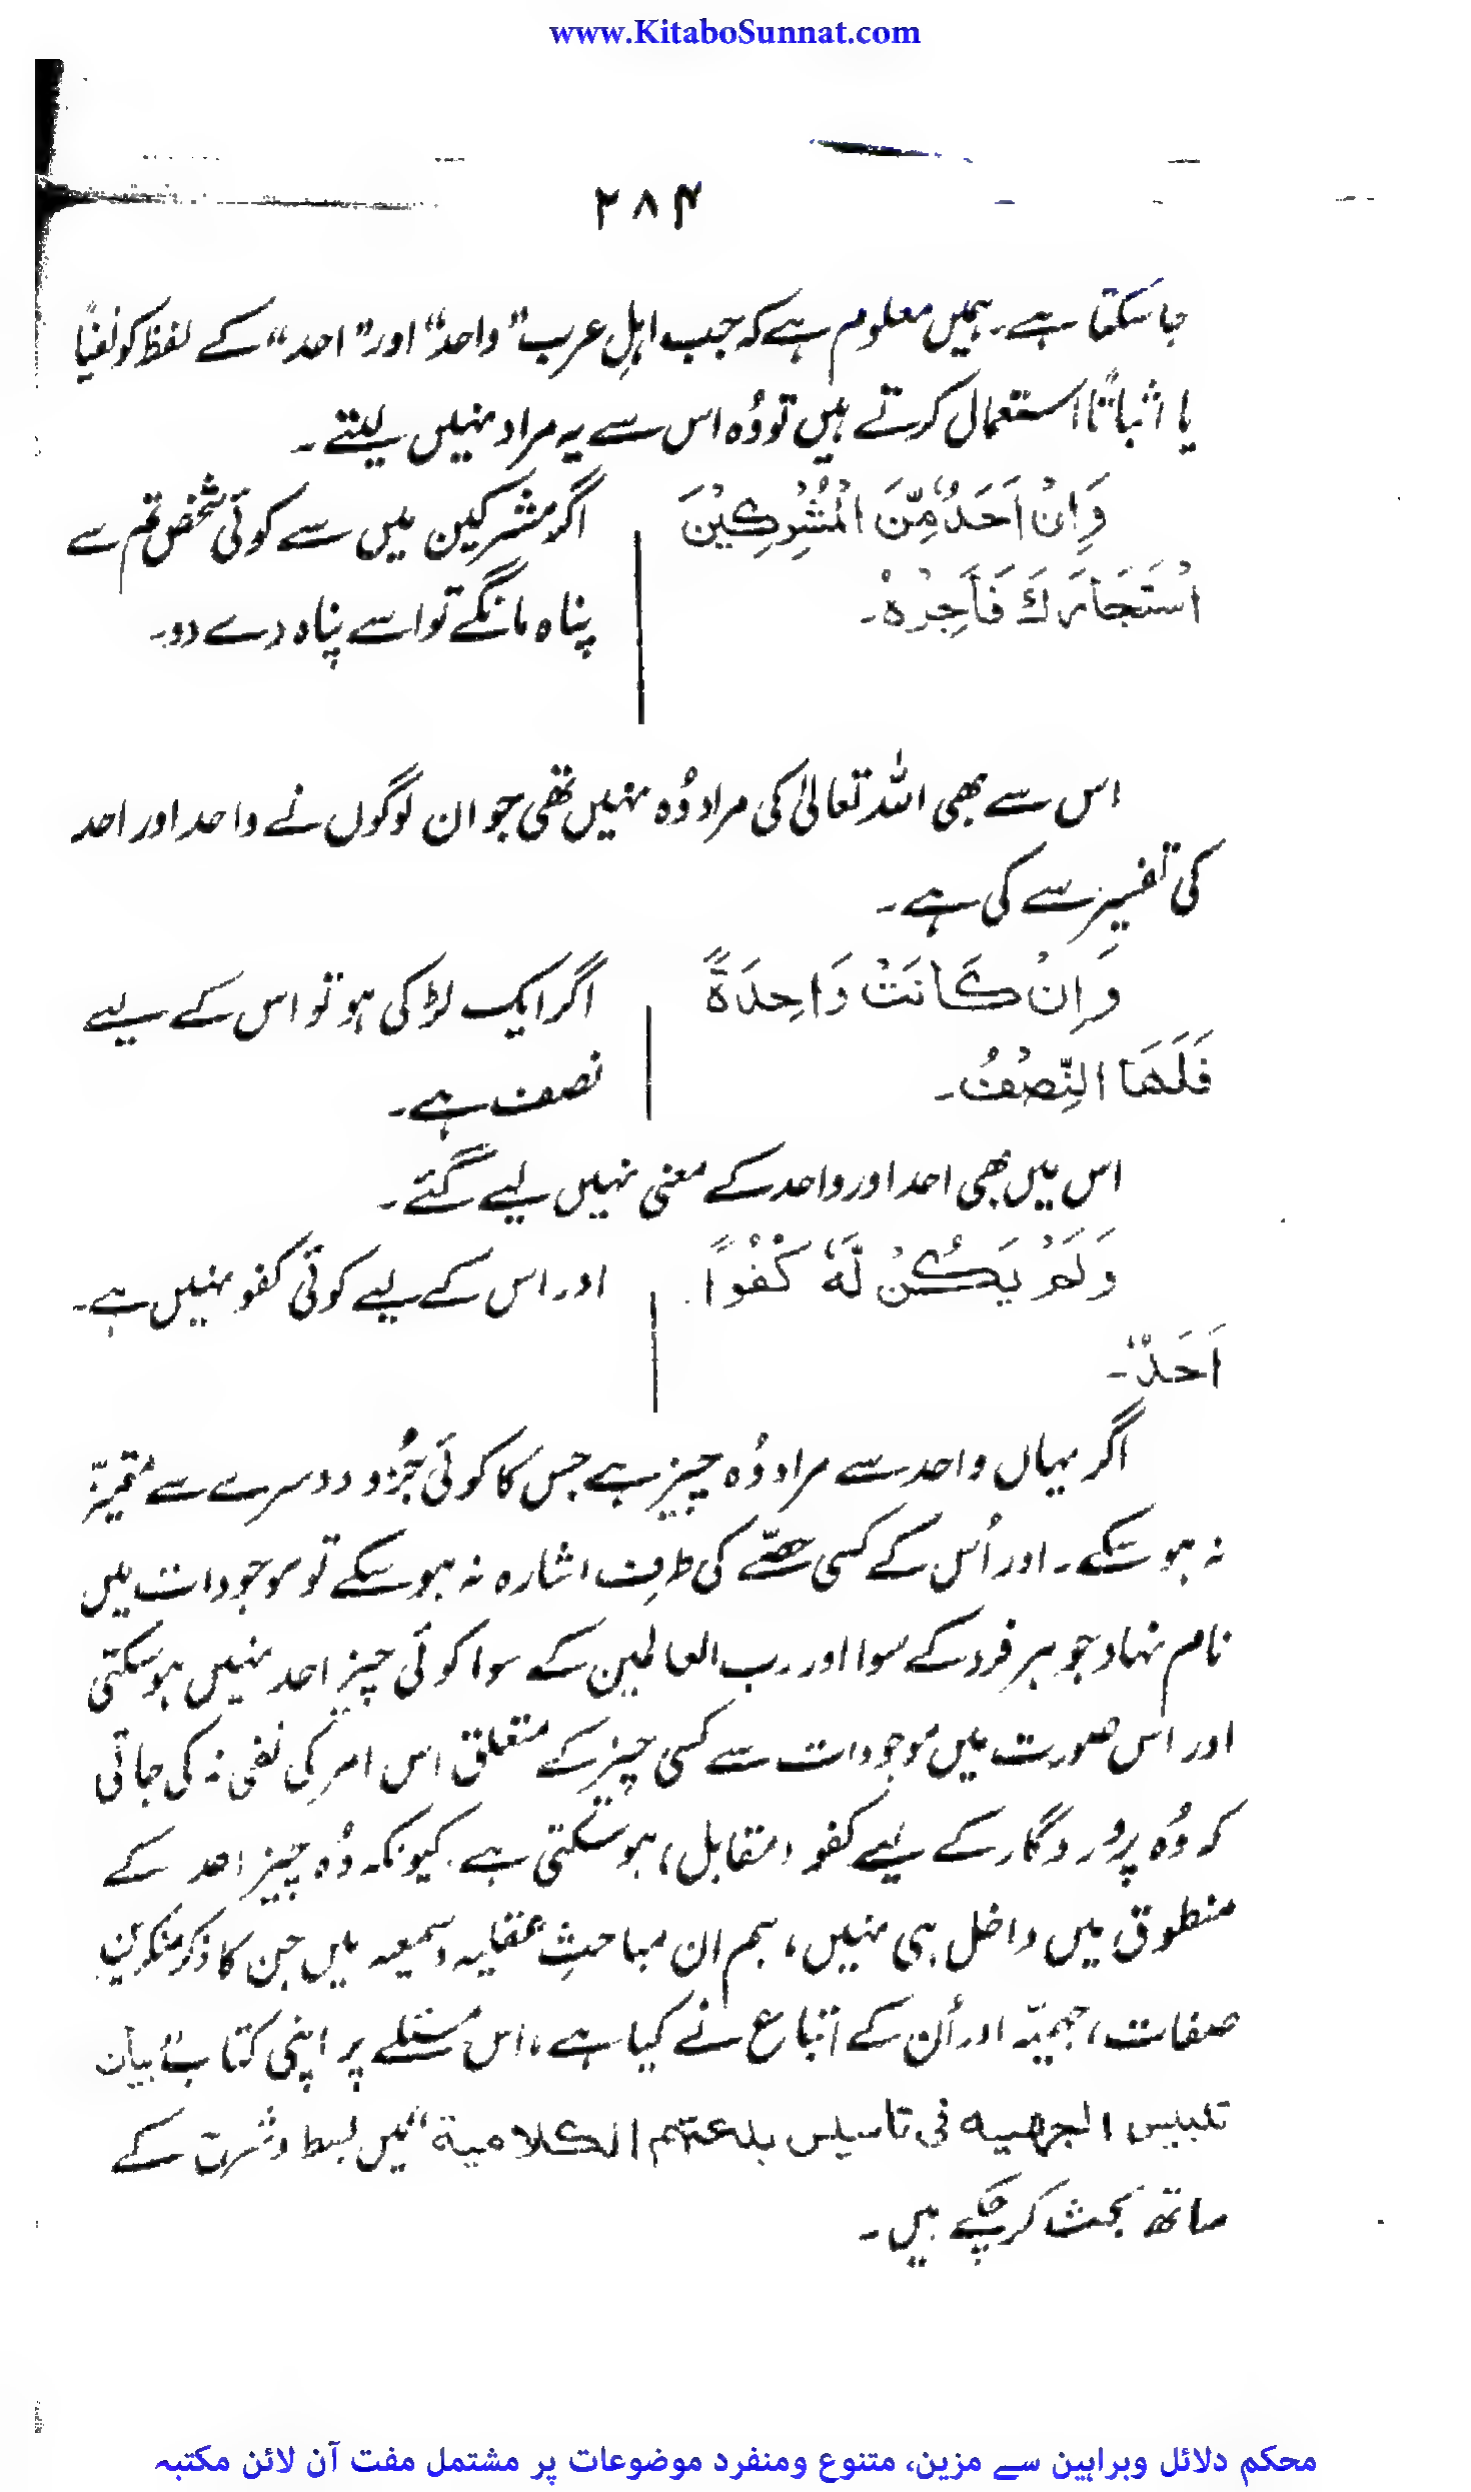 www.KitaboSunnat.com
۲۸۴
جا سکتا ہے۔ ہمیں معلوم ہے کہ جب اہلِ عرب "واحد" اور "احد" کے لفظ کو نفیاً
یا اثباتاً استعمال کرتے ہیں تو وُہ اس سے یہ مراد نہیں لیتے۔
وَاِنْ اَحَدٌ مِّنَ الْمُشْرِكِيْنَ
اسْتَجَارَكَ فَاَجِرْهُ۔
اگر مشرکین میں سے کوئی شخص تم سے
پناہ مانگے تو اسے پناہ دے دو۔
اس سے بھی اللہ تعالیٰ کی مراد وُہ نہیں تھی جو ان لوگوں نے واحد اور احد
کی تفسیر سے کی ہے۔
وَاِنْ كَانَتْ وَاحِدَةً
فَلَهَا النِّصْفُ۔
اگر ایک لڑکی ہو تو اس کے لیے
نصف ہے۔
اس میں بھی احد اور واحد کے معنی نہیں لیے گئے۔
وَلَمْ يَكُنْ لَّهٗ كُفُوًا
اَحَدٌ۔
اور اس کے لیے کوئی کفو نہیں ہے۔
اگر یہاں واحد سے مراد وُہ چیز ہے جس کا کوئی جُزو دوسرے سے مُتمیّز
نہ ہو سکے۔ اور اُس کے کسی حصّے کی طرف اشارہ نہ ہو سکے تو موجودات میں
نام نہاد جوہر فرد کے سوا اور رب العالمین کے سوا کوئی چیز احد نہیں ہو سکتی
اور اس صورت میں موجودات سے کسی چیز کے متعلق اس امر کی نفی نہ کی جاتی
کہ وُہ پروردگار کے لیے کفو (مقابل) ہو سکتی ہے۔ کیونکہ وُہ چیز احد کے
منطوق میں داخل ہی نہیں، ہم ان مباحثِ عقلیہ و سمعیہ میں جن کا ذکر منکرینِ
صفات، جہمیّہ اور اُن کے اتباع نے کیا ہے، اس مسئلے پر اپنی کتاب "بیان
تلبیس الجهمیه فی تاسیس بدعتهم الکلامیة" میں بسط و شرح کے
ساتھ بحث کر چکے ہیں۔
محکم دلائل وبراہین سے مزین، متنوع ومنفرد موضوعات پر مشتمل مفت آن لائن مکتبہ